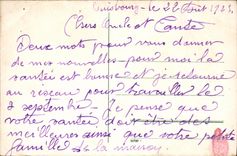 Duisbourg le 22 Août 1923
Chers Oncle et Tante
Deux mots pour vous donner
de mes nouvelles pour moi la
santée est bonne et je retourne
au réseau pour travailler le
2 septembre. Je pense que
votre santée doit être des
meilleures ainsi que votre petite
famille de la maison